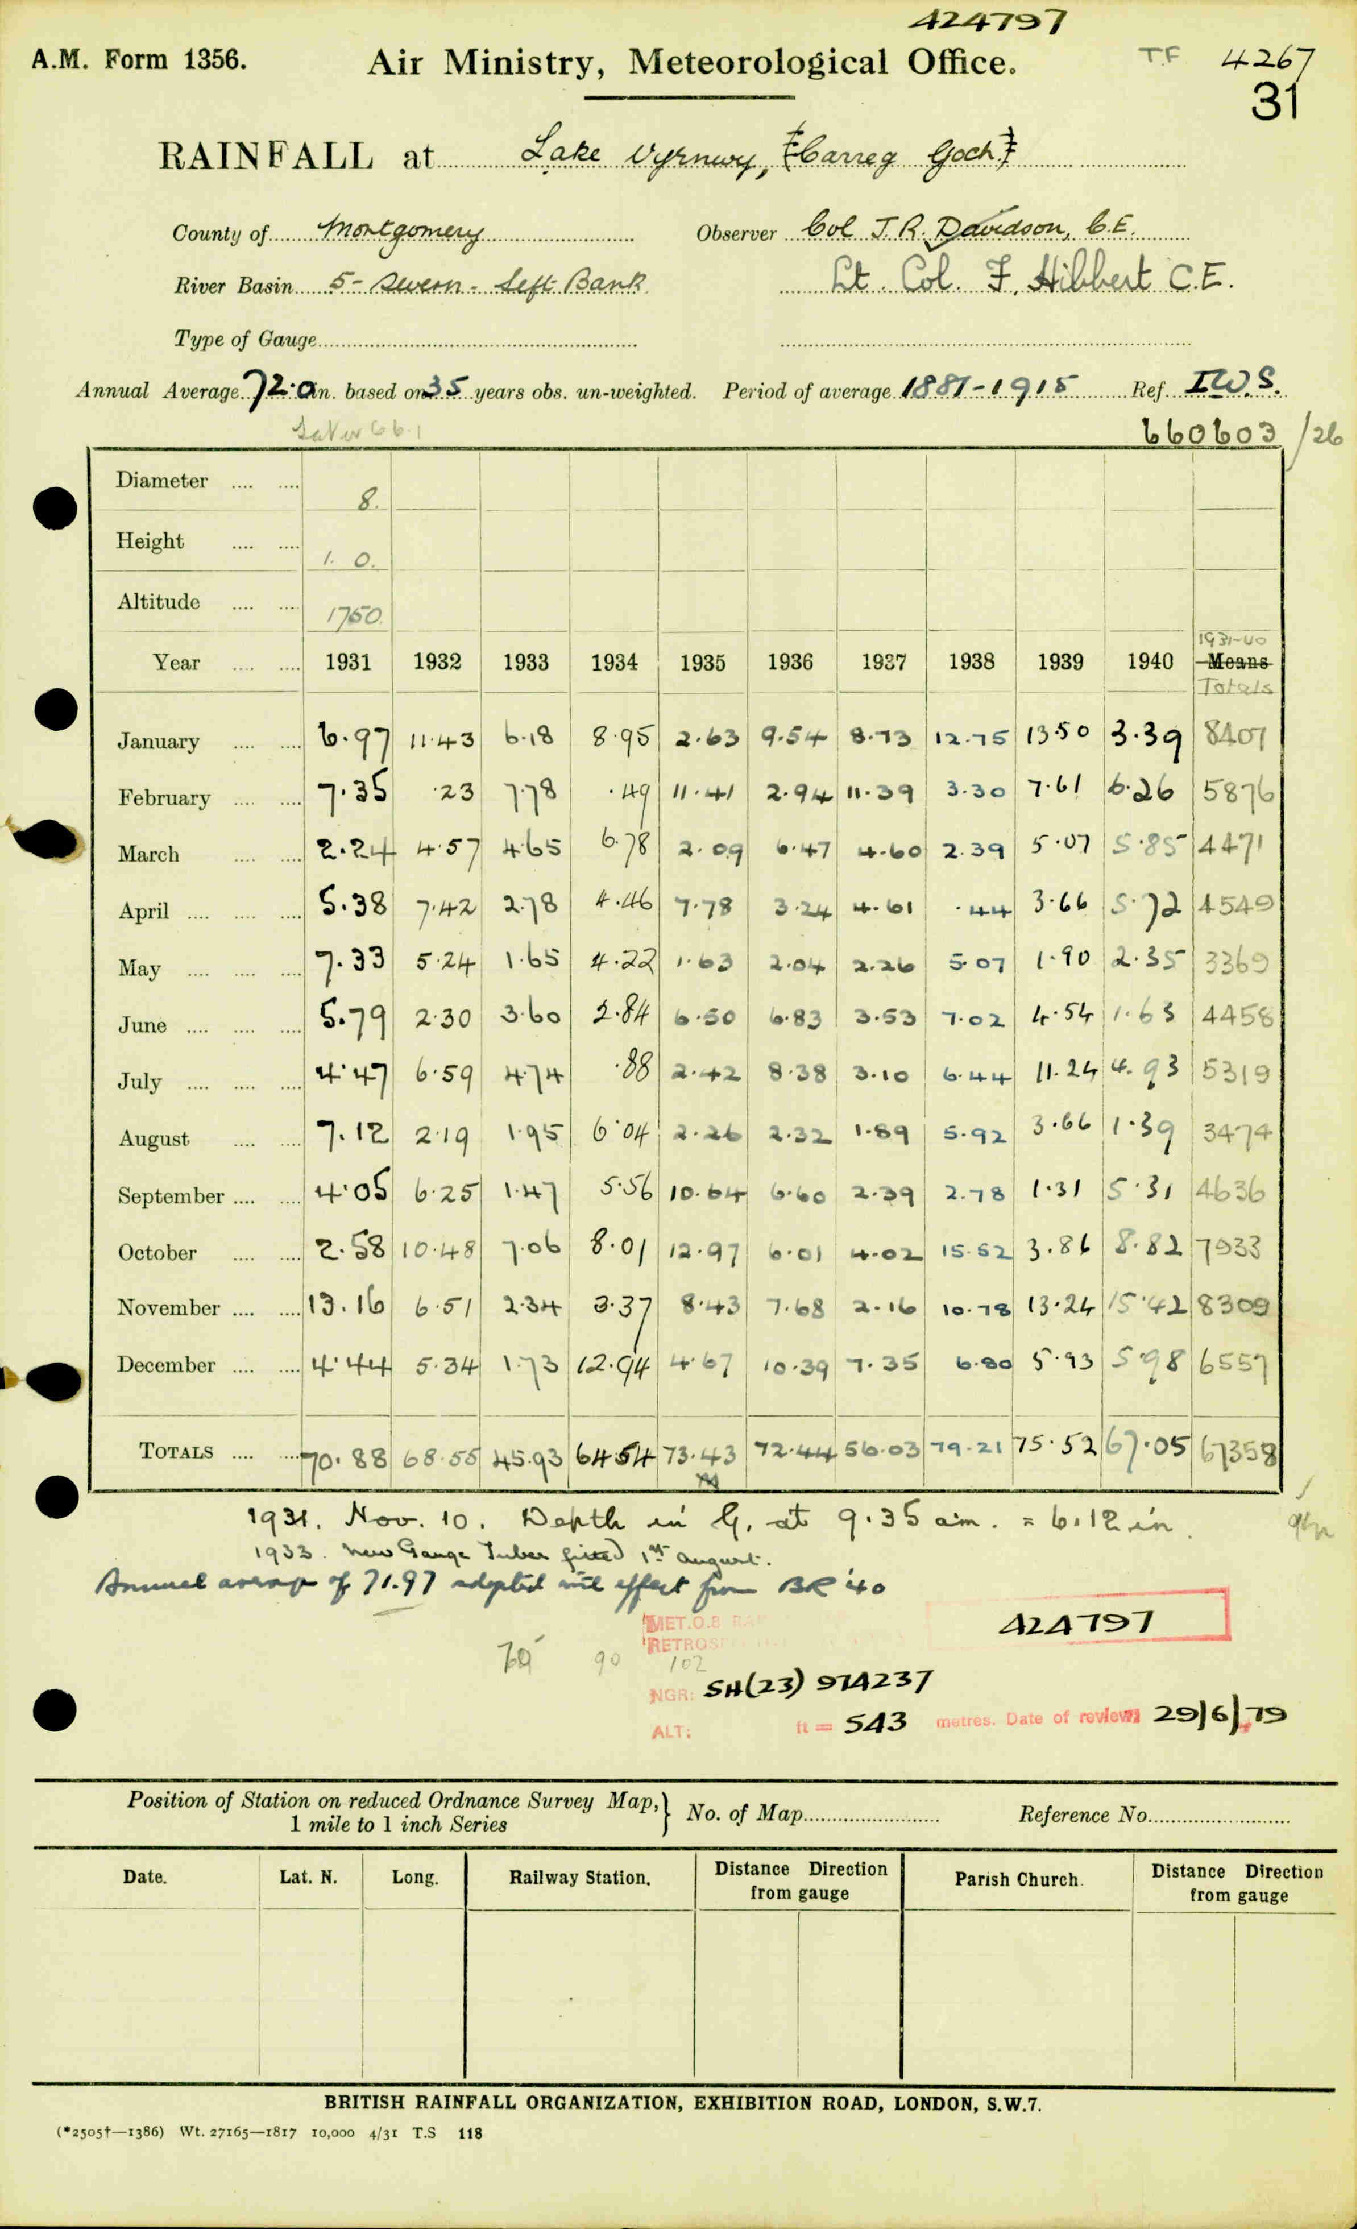 424797
A.M. Form 1356. Air Ministry, Meteorological Office. T.F 4267
31
RAINFALL at Lake Vyrnwy, (Carreg Goch)
County of Montgomery Observer Col J.R. Davidson, C.E.
River Basin 5 - Severn - Left Bank Lt. Col. F. Hibbert C.E.
Type of Gauge
Annual Average 72.0 in. based on 35 years obs. un-weighted. Period of average 1881-1915 Ref. I.W.S.
660603 /26
Diameter .... .... 8.
Height .... .... 1. 0.
Altitude .... .... 1750.
1931-40
Year .... .... 1931 1932 1933 1934 1935 1936 1937 1938 1939 1940 Means
Totals
January .... .... 6.97 11.43 6.18 8.95 2.63 9.54 8.73 12.75 13.50 3.39 8407
February .... .... 7.35 .23 7.78 .49 11.41 2.94 11.39 3.30 7.61 6.26 5876
March .... .... 2.24 4.57 4.65 6.78 2.09 6.47 4.60 2.39 5.07 5.85 4471
April .... .... .... 5.38 7.42 2.78 4.46 7.78 3.24 4.61 .44 3.66 5.72 4549
May .... .... .... 7.33 5.24 1.65 4.22 1.63 2.04 2.26 5.07 1.90 2.35 3369
June .... .... .... 5.79 2.30 3.60 2.84 6.50 6.83 3.53 7.02 4.54 1.63 4458
July .... .... .... 4.47 6.59 4.74 .88 2.42 8.38 3.10 6.44 11.24 4.93 5319
August .... .... 7.12 2.19 1.95 6.04 2.26 2.32 1.89 5.92 3.66 1.39 3474
September .... .... 4.05 6.25 1.47 5.56 10.64 6.60 2.39 2.78 1.31 5.31 4636
October .... .... 2.58 10.48 7.06 8.01 12.97 6.01 4.02 15.52 3.86 8.82 7933
November .... .... 13.16 6.51 2.34 3.37 8.43 7.68 2.16 10.78 13.24 15.42 8309
December .... .... 4.44 5.34 1.73 12.94 4.67 10.39 7.35 6.80 5.93 5.98 6557
TOTALS .... .... 70.88 68.55 45.93 64.54 73.43 72.44 56.03 79.21 75.52 67.05 67358
1931. Nov. 10. Depth in G. at 9.35 a.m. = 6.12 in.
1933. New Gauge Tubes fitted 1st August.
Annual average of 71.97 adopted with effect from BR '40
MET.O.8
RETROS
424797
90 102
NGR: SH(23) 974237
ALT: ft = 543 metres. Date of review: 29/6/79
Position of Station on reduced Ordnance Survey Map, } No. of Map Reference No.
1 mile to 1 inch Series
Date. Lat. N. Long. Railway Station. Distance Direction from gauge Parish Church. Distance Direction from gauge
BRITISH RAINFALL ORGANIZATION, EXHIBITION ROAD, LONDON, S.W.7.
(*2505†—1386) Wt. 27165—1817 10,000 4/31 T.S 118